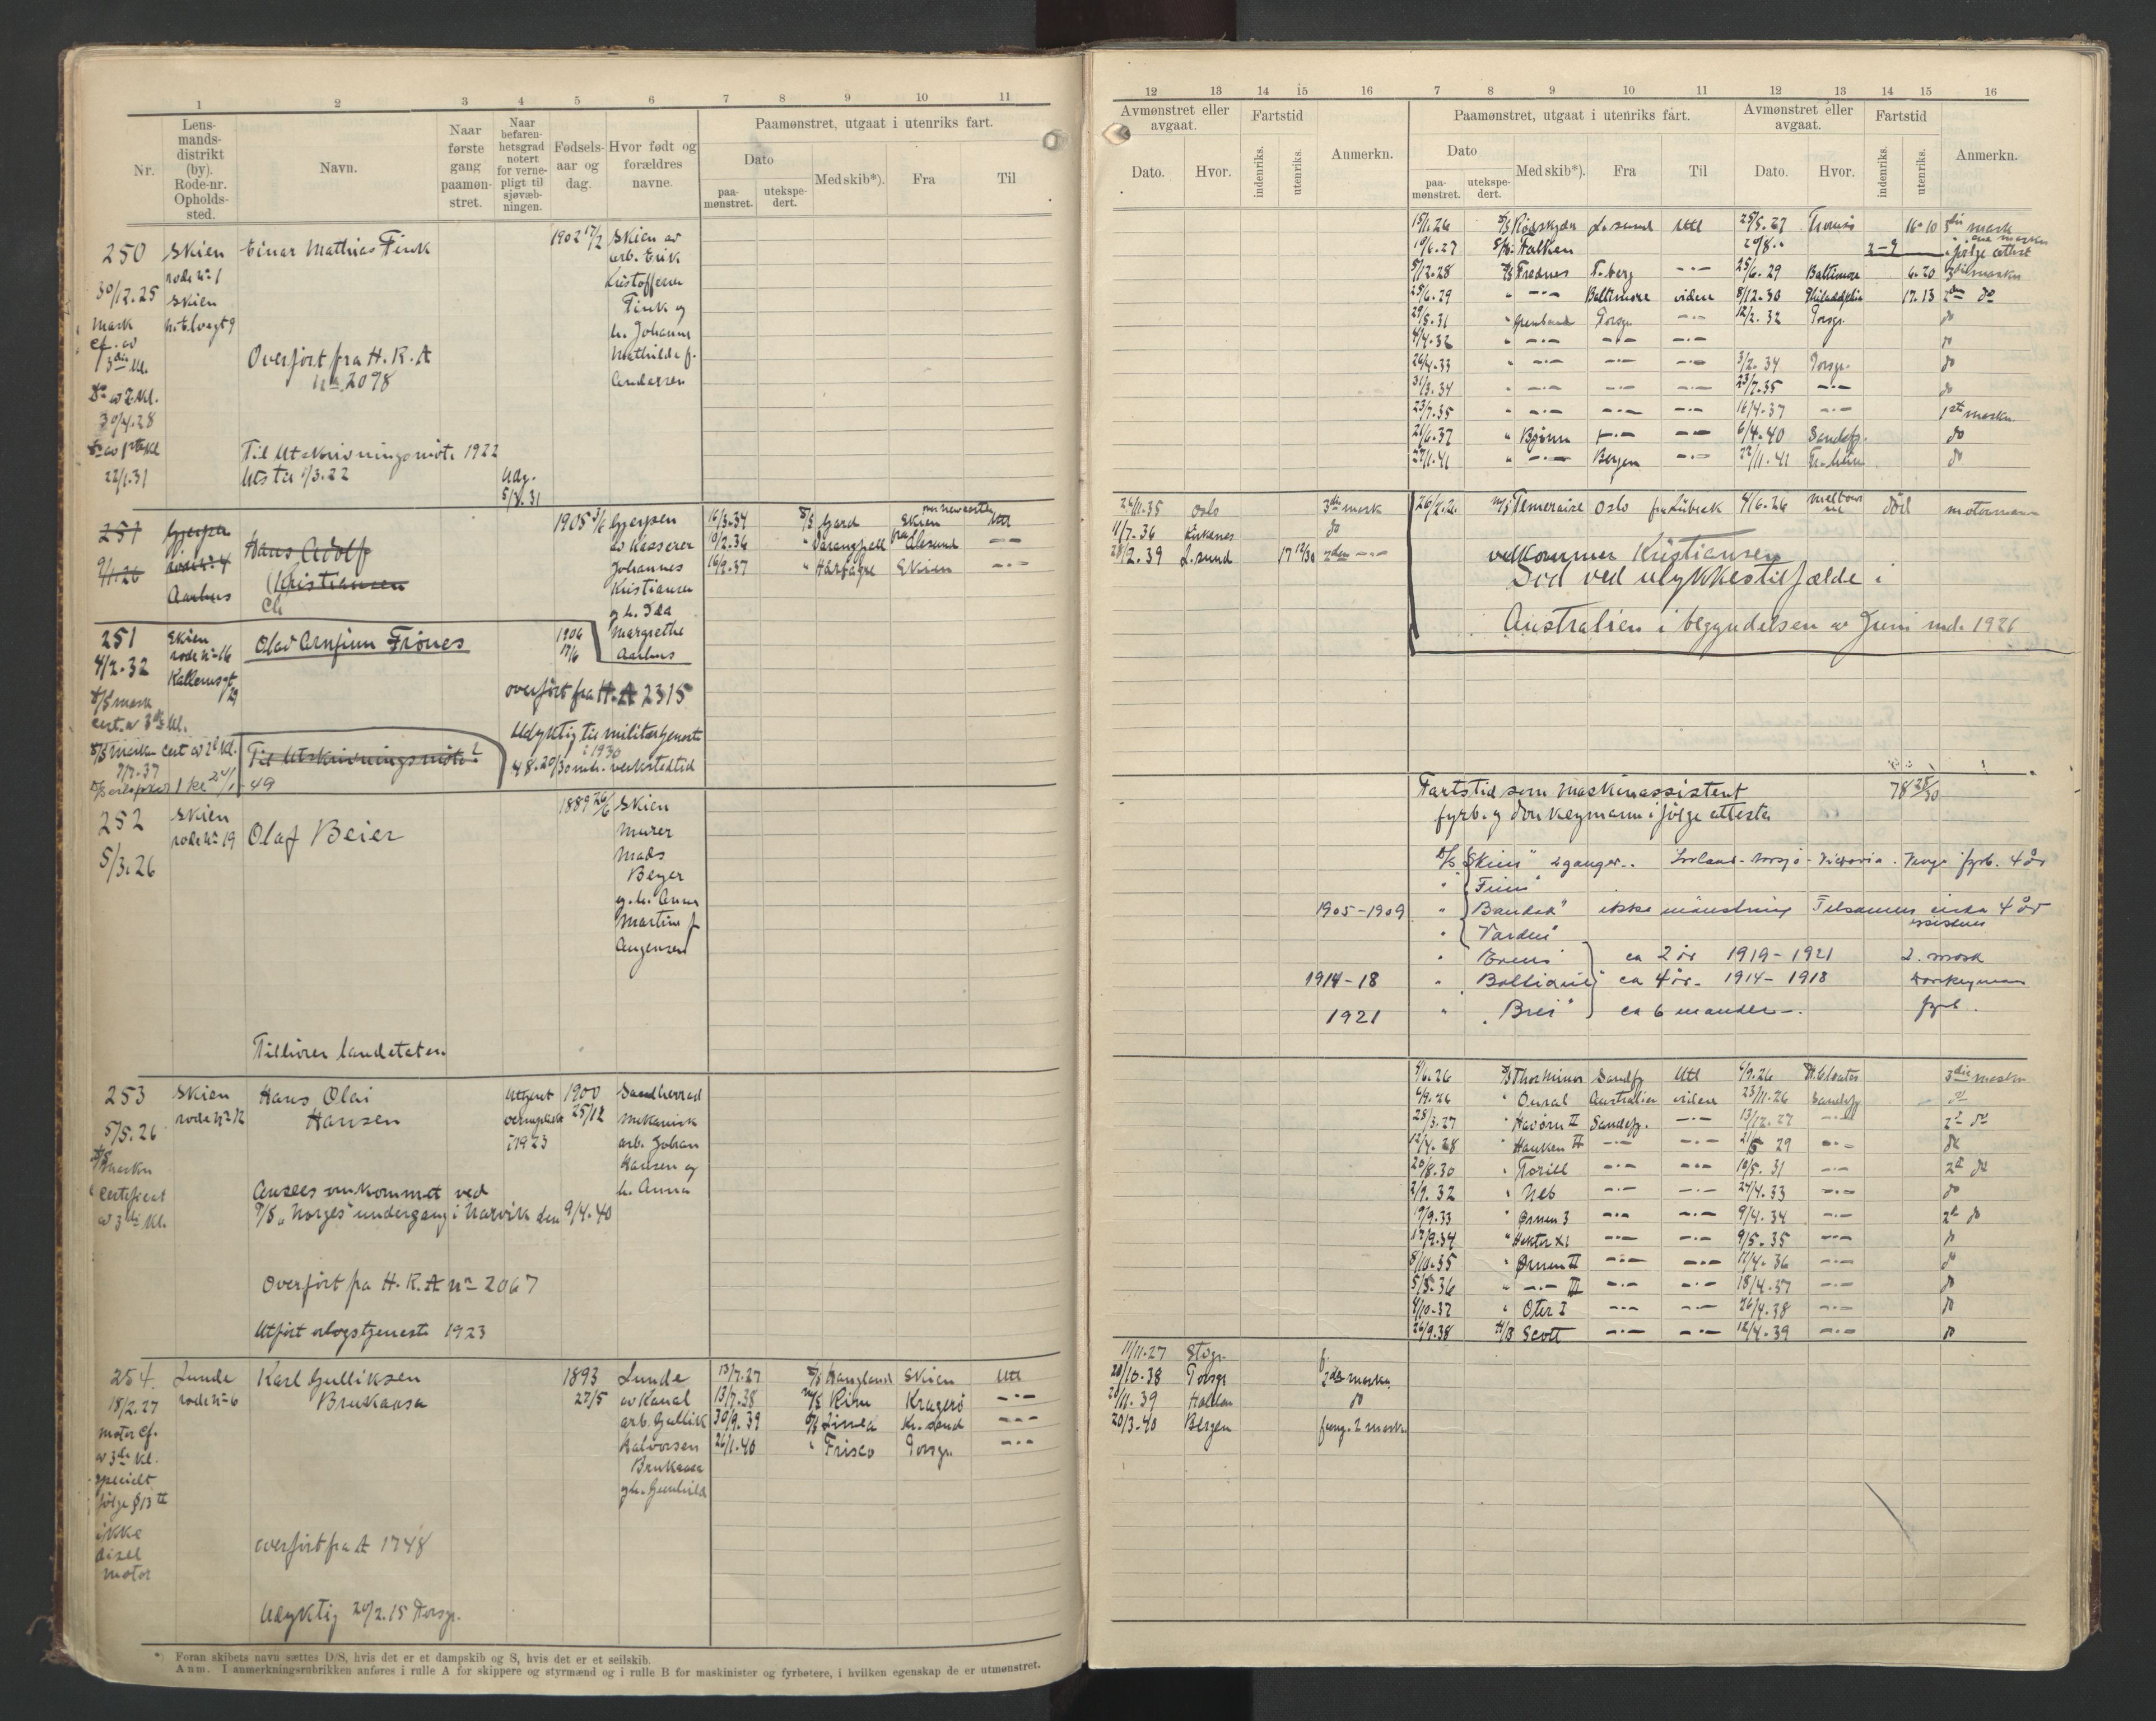 1 2 3 4 5 6 7 8 9 10 11
Nr.
Lens-
mands-
distrikt
(by).
Rode-nr.
Opholds-
sted.
Navn.
Naar
første
gang
paamøn-
stret.
Naar
befaren-
hetsgrad
notert
for verne-
pligt til
sjøvæb-
ningen.
Fødsels-
aar og
dag.
Hvor født og
forældres
navne.
Paamønstret, utgaat i utenriks fart.
Dato
paa-
mønstret.
utekspe-
dert.
Med skib*).
Fra
Til
250 Skien Einar Mathias Fink 1902 17/2 Skien av
rode no 1 arb. Erik
30/12.25 Skien Kristoffersen
Fink og
mark
cf. av h. Johanne
3die kl. Overført fra H.R.A Mathilde f.
no 2098 Andersen
Do av 2. kl.
30/4.28
Til Utskrivningsmøte 1922
22/1.31 Utsta 1/3.22 Udy.
5/8.31
251 Gjerpen 1905 3/6 Gjerpen 16/3.34 D/S Gard Skien Utl
9/1.26 rode no 4 Hans Adolf av Kasserer 10/2.36 " Varangfjell fra Ålesund
Aarhus Kristiansen Johannes 16/9.37 " Hårfagre Skien
Kristiansen
og h. Ida
251 Skien Olav Arnfinn Frönes 1906 Margrethe
4/2.32 rode no 16 17/6 Aarhus
D/S mask overført fra H.A 2315
cert. av 3die kl.
Udyktig til militærtjeneste
i 1930
D/S maskn cert av 2 kl. Til Utskrivningsmøte 48.20/30 mdr. verkstedtid
7/7.37
252 Skien 1889 26/6 Skien
5/3.26 rode no 19 Olaf Beier Murer
Mads
Beyer
og h. Anna
Martine f
Tilhører landetaten
253 Skien Hans Olai Utgent 1900 Sandherred
5/5.26 rode no 12 Hansen vernepligt 25/12 mekanisk
i 1923 arb. Johan
D/S maskn Hansen og
Certificat Ansees omkommet ved h. Anna
av 3die kl. P/S „Norges" undergang i Narvik den 9/4.40
Overført fra H.R.A no 2067
Utført orlogstjeneste 1923
254. Lunde Karl Gulliksen 1893 Lunde 13/7.27 D/S Haugland Skien Utl
18/2.27 rode no 6 Brukaasa 27/5 av Kanal 13/7.38 M/S Rimu Kragerö
motor cf. arb. Gullik 30/9.39 D/S Linnea Kr.sand
av 3die kl. Halvorsen 26/1.40 " Frisco Porsgr.
specielt Brukaasa
følge § 13 II og h. Gunhild
ikke
disel overført fra A 1748
motor
Udyktig 20/2.15 Porsgr.
*) Foran skibets navn sættes D/S, hvis det er et dampskib og S, hvis det er et seilskib.
Anm. I anmerkningsrubrikken anføres i rulle A for skippere og styrmænd og i rulle B for maskinister og fyrbøtere, i hvilken egenskap de er utmønstret.
12 13 14 15 16 7 8 9 10 11 12 13 14 15 16
Avmønstret eller
avgaat.
Dato. Hvor.
Fartstid
indenriks. utenriks.
Anmerkn.
Paamønstret, utgaat i utenriks fart.
Dato
paa-
mønstret.
utekspe-
dert.
Med skib*). Fra Til
Avmønstret eller
avgaat.
Dato. Hvor.
Fartstid
indenriks. utenriks.
Anmerkn.
15/1.26 D/S Rødskjær L.sund Utl 25/5.27 Tromsö 16-10 3die mask
10/6.27 Falken 20/8 2-9 ifølge attest
5/12.28 D/S Frednes T.berg 25/6.29 Baltimore 6.20 3die maskn
25/6.29 " Baltimore videre 8/12.30 Philadelphia 17.13 2den do
29/5.31 Porsgr. 12/2.32 Porsgr. do
4/4.32 do
26/4.33 3/2.34 Porsgr. do
31/3.34 23/7.35 do
23/7.35 16/4.37 1ste maskn.
21/6.37 " Bjönn 6/4.40 Sandefj. do
27/1.41 Bergen 22/11.41 do
26/11.35 Oslo 3die mask 26/2.26 M/S Temeraire Oslo fra Lübeck 4/6.26 Död motormann
11/7.36 Kirkenes do
28/2.39 L.sund 17 12/30 2den
vedkommer Kristiansen
Död ved ulykkestilfælde i
Australien i begyndelsen av Juni md. 1926
Fartstid som maskinassistent 78 28/30
fyrb. og donkeymann ifølge attester
D/S „Skien" 2 ganger fyrb. 4 år
1905-1909 " Bandak" ikke mönstring Tilsammen cirka 4 år
" Varden
ca 2 år 1919-1921 2. mask
1914-18 ca 4 år - 1914-1918 Donkeyman
1921 " „Brei" ca 6 maander fyrb.
4/6.26 D/S Thor Minor Sandefj Utl 4/9.26 3die maskn
4/9.26 " Oural Australien videre 23/11.26 Sandefj do
25/3.27 " Havörn II Sandefj. 13/12.27 2de do
12/4.28 " Hauken II 21/5 29 do
20/8.30 " Torill 10/5.31 2de do
2/9.32 " Neb 24/4.33 do
19/9.33 " Ørnen 3 9/4.34 2de do
17/9.34 " Hektor XI 9/5.35 do
8/10.35 " Ørnen II 11/4.36 do
5/5.36 " III 18/4.37 do
4/10.37 " Oter I 26/4.38 do
26/9.38 H/B Scott 12/4.39 do
11/11.27 Stögr.
20/10.38 Porsgr 2den maskn.
20/11.39 Halden do
20/3.40 Bergen fung. 2 maskn.